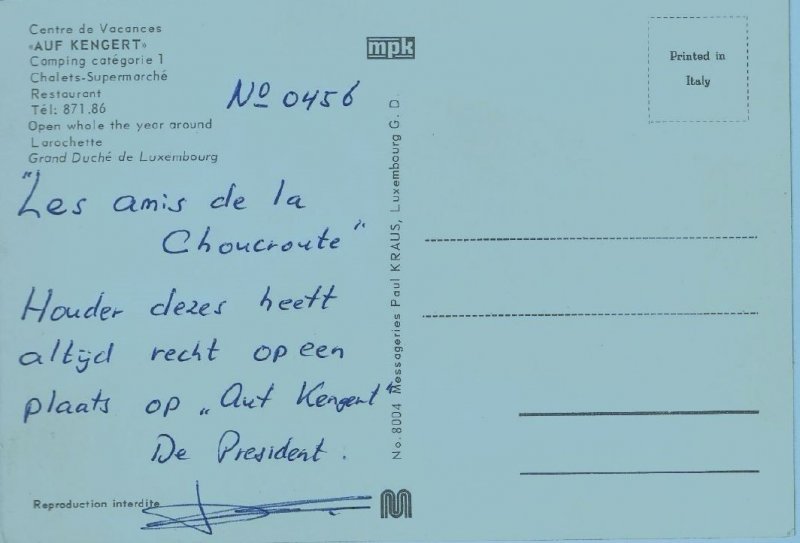 Centre de Vacances
«AUF KENGERT»
Camping catégorie 1
Chalets-Supermarché
Restaurant
Tél: 871.86
Open whole the year around
Larochette
Grand Duché de Luxembourg
mpk
Printed in
Italy
No 0456
"Les amis de la
Choucroute"
Houder dezes heeft
altijd recht op een
plaats op „Auf Kengert"
De President.
Reproduction interdite
No. 8004 Messageries Paul KRAUS, Luxembourg G. D.